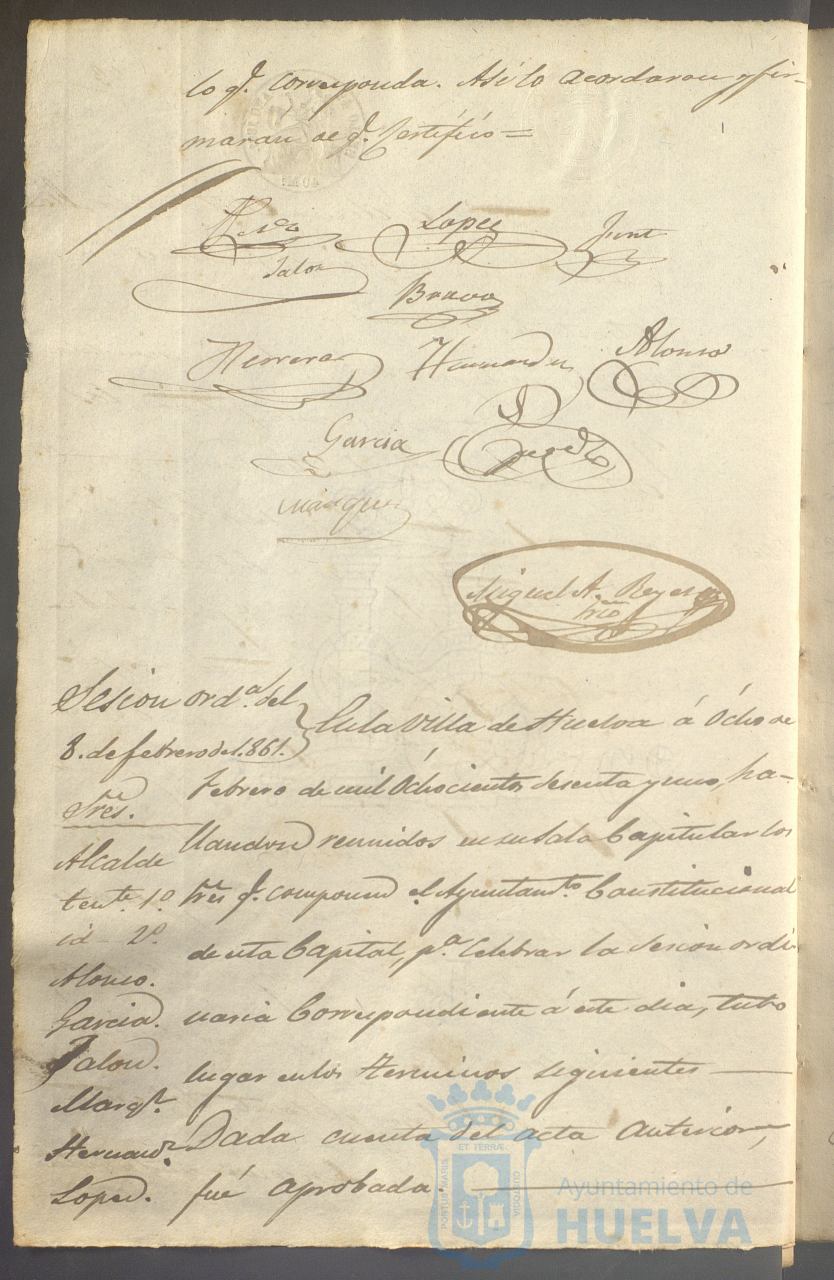 lo q.e corresponda. Asi lo acordaron y fir-
maran de q.e Certifico=
Lopez
Jalon
Bravo
Herrera Hernandez Alonso
Garcia
Marquez
Miguel A. Reyes
Srio
Sesion ord.a del
8. de febrero de 1.861.
Sres.
Alcalde
tent.e 1.o
id - 2.o
Alonso.
Garcia.
Jalon.
Marq.z
Hernand.z
Lopez.
En la Villa de Huelva á Ocho de
Febrero de mil Ochocientos sesenta y uno, ha-
llandose reunidos en su Sala Capitular los
Sres q.e componen el Ayuntam.to Constitucional
de esta Capital, p.a Celebrar la Sesion ordi-
naria Correspondiente á este dia, tubo
lugar en los terminos siguientes
Dada cuenta del acta anterior,
fué aprobada.
PORTUS MARIS ET TERRÆ CUSTODIA
Ayuntamiento de
HUELVA